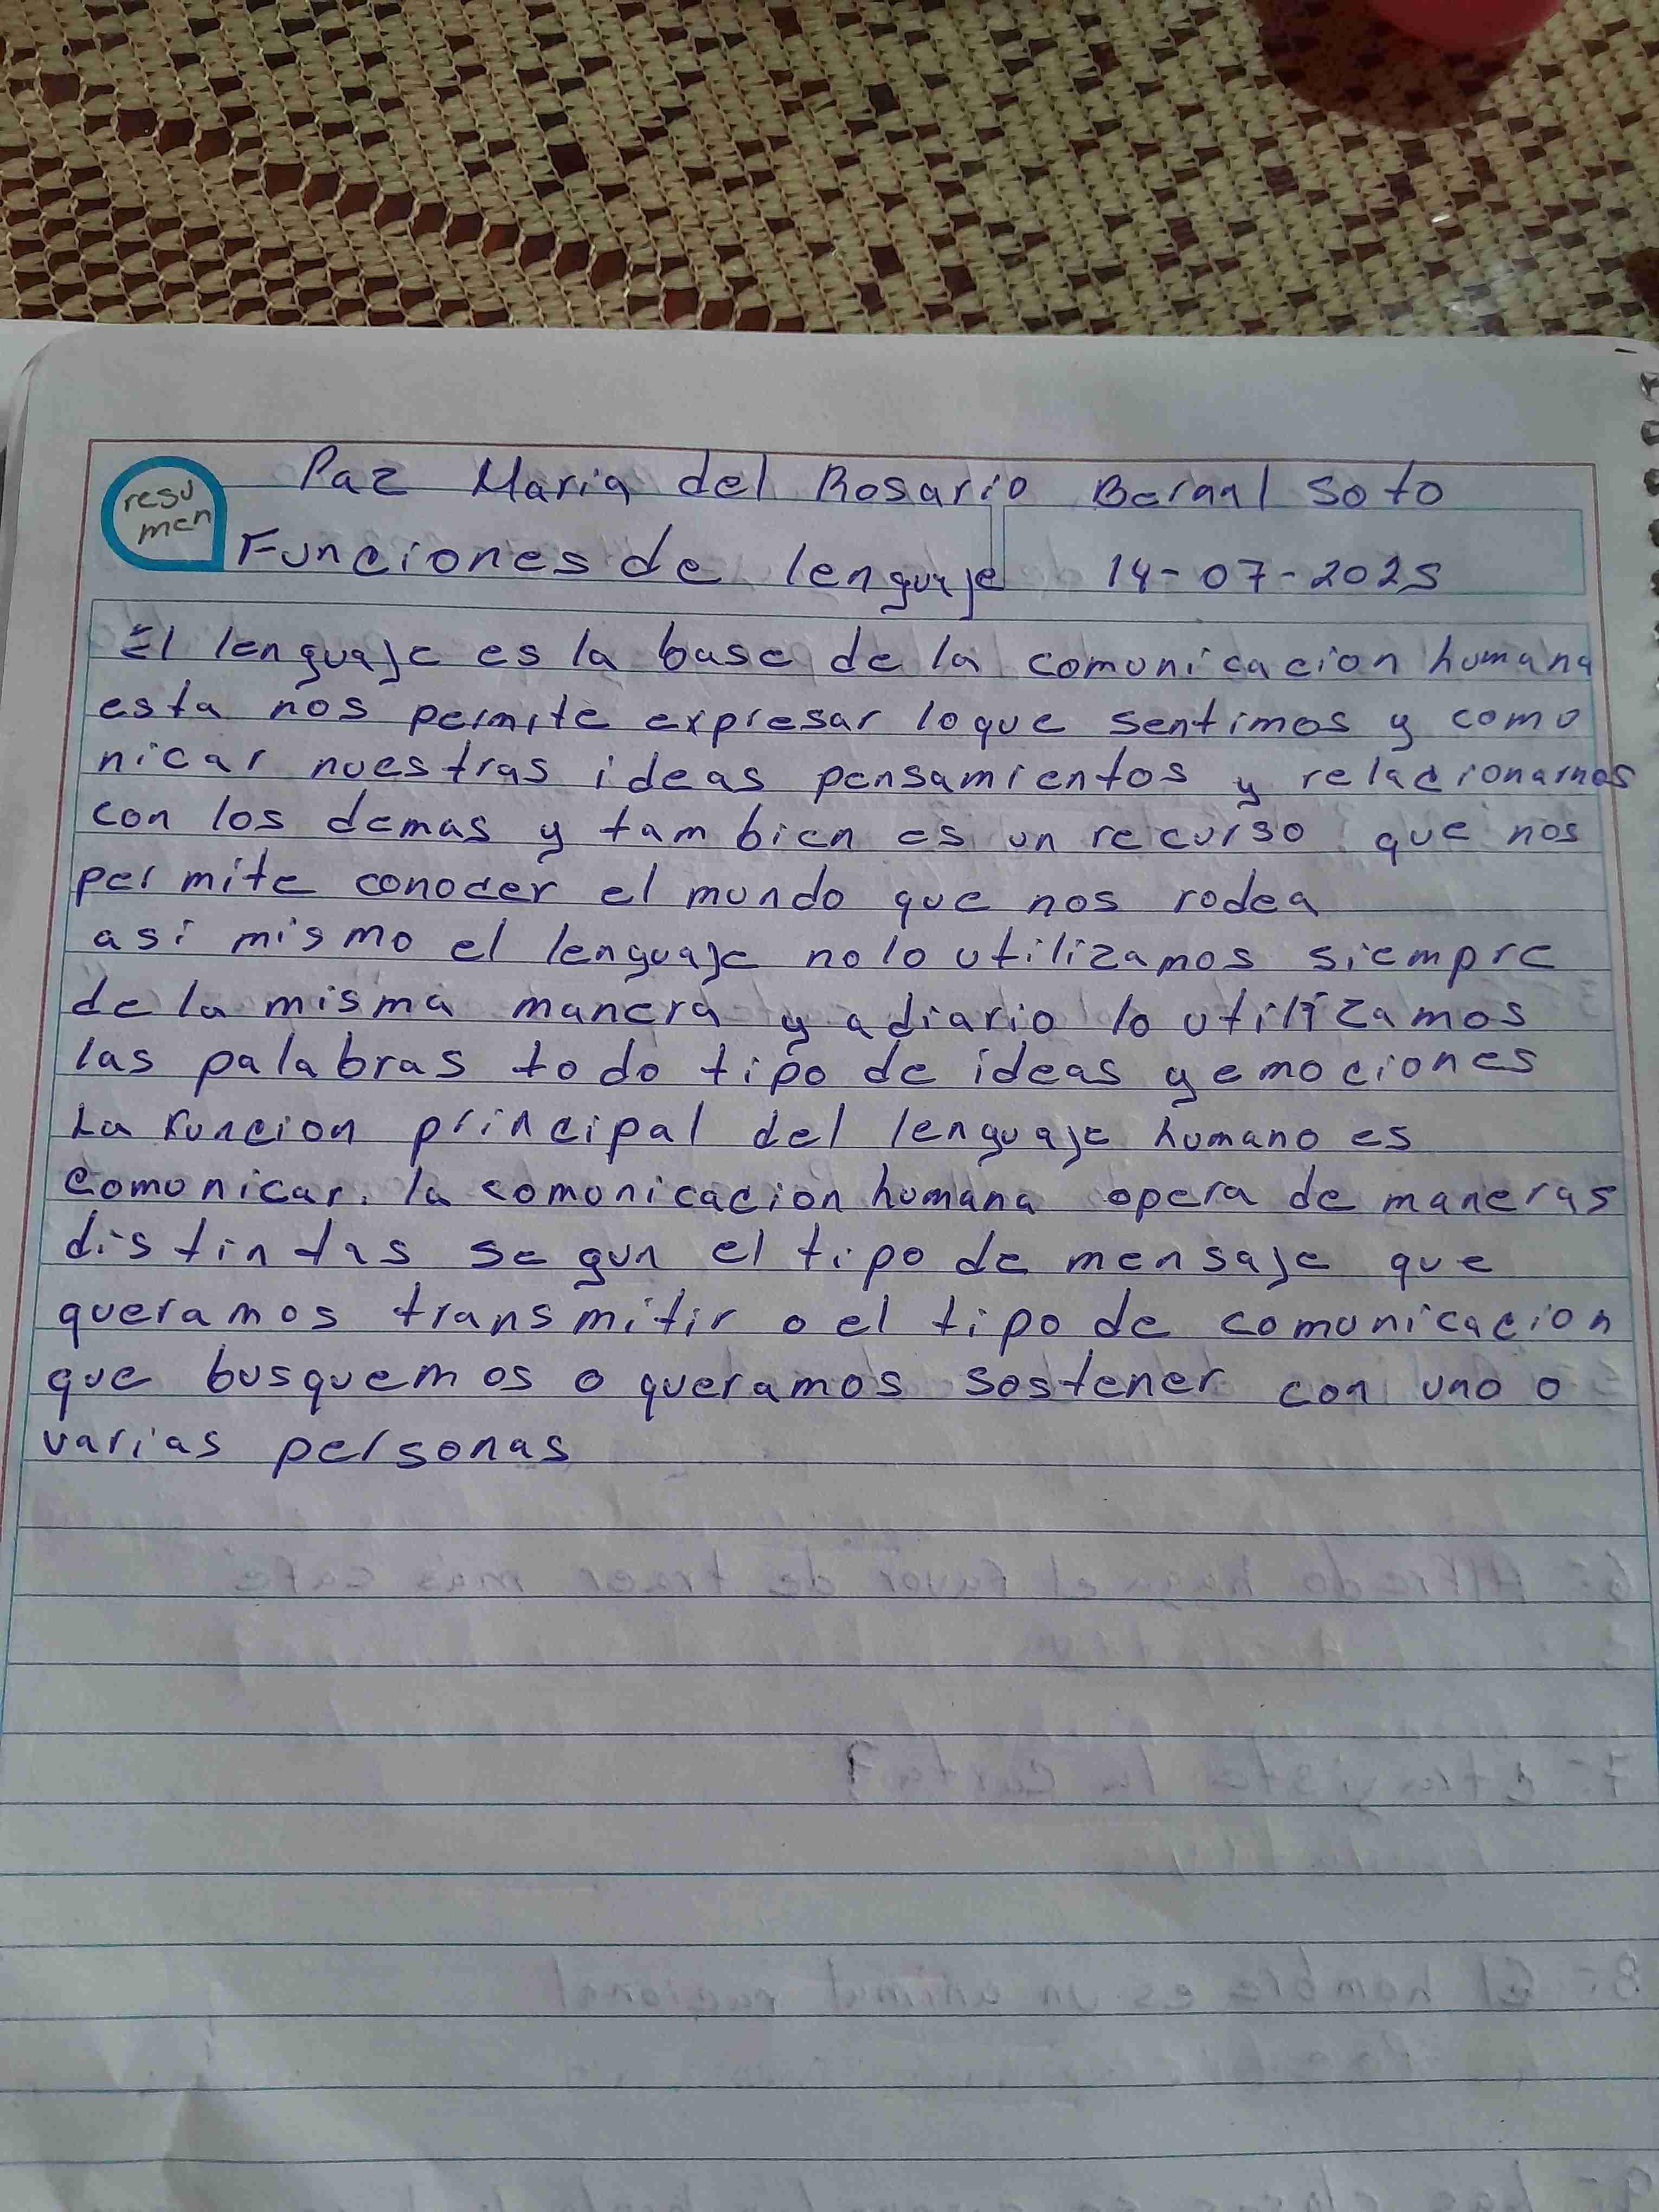 resu
men
Paz Maria del Rosario Bernal Soto
Funciones de lenguaje 14-07-2025
El lenguaje es la base de la comunicacion humana
esta nos permite expresar lo que sentimos y comu
nicar nuestras ideas pensamientos y relacionarnos
con los demas y tambien es un recurso que nos
permite conocer el mundo que nos rodea
asi mismo el lenguaje no lo utilizamos siempre
de la misma manera y a diario lo utilizamos
las palabras todo tipo de ideas y emociones
La funcion principal del lenguaje humano es
comunicar. la comunicacion humana opera de maneras
distintas segun el tipo de mensaje que
queramos transmitir o el tipo de comunicacion
que busquemos o queramos sostener con uno o
varias personas